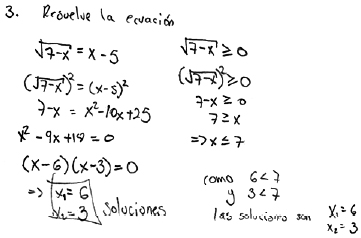 3. Resuelve la ecuación
√7-x = x-5
(√7-x)² = (x-5)²
7-x = x²-10x+25
x²-9x+18=0
(x-6)(x-3)=0
=> x₁=6
x₂=3 soluciones
√7-x ≥ 0
(√7-x)² ≥ 0
7-x ≥ 0
7 ≥ x
=> x ≤ 7
como 6<7
y 3<7
las soluciones son x₁=6
x₂=3